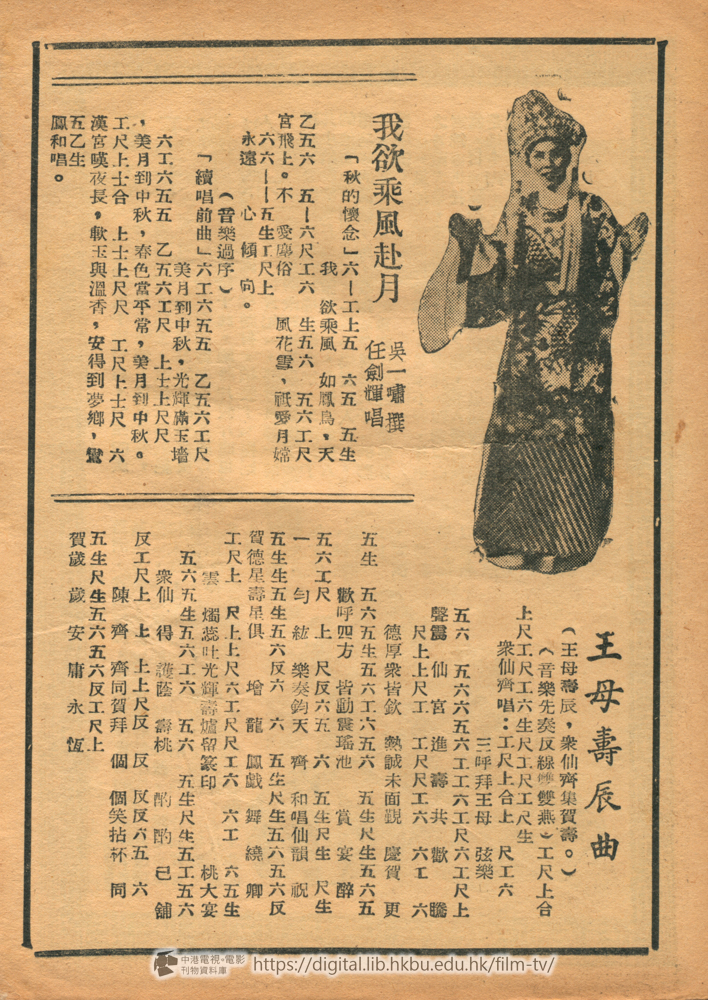 我欲乘風赴月
吳一嘯撰
任劍輝唱
「秋的懷念」六—工上五 六五 五生
我 欲乘風 如鳳鳥,天
乙五六 五—六尺工六 生五六 五六工尺
宮飛上。不 愛塵俗 風花雪、祇愛月嫦
六六——五生工尺上
永遠 心 傾 向。
(音樂過序)
「續唱前曲」六工六五五 乙五六工尺
美月到中秋,光輝滿玉墻
六工六五五 乙五六工尺 上士上尺尺
,美月到中秋,春色當平常,美月到中秋。
工尺上士合 上士上尺尺 工尺上士尺 六
漢宮嘆夜長,軟玉與溫香,安得到夢鄉,鸞
五乙生
鳳和唱。
王母壽辰曲
(王母壽辰,衆仙齊集賀壽。)
(音樂先奏反線雙燕)工尺上合
上尺工尺工六生尺工尺工尺生
衆仙齊唱:工尺上合上 尺工六
三呼拜王母 弦樂
五六 五六六五六工工六工尺六工尺上
聲震 仙 宮 進 壽 共 歡 騰
尺上上尺工 工尺尺工六 六工 六
德厚衆皆欽 熱誠未面覲 慶賀 更
五生 五六五生五六工六五六 五生尺生五六五
歡呼四方 皆動震瑤池 賞 宴 醉
五六工尺 上 尺反六五 六 五生尺生 尺生
一 勻 絃 樂奏鈞天 齊 和唱仙韻 祝
五生生五生五六反六 六 五生尺生五六五六反
賀德星壽星俱 增 龍 鳳戲 舞 繞 卿
工尺上 尺上上尺六工尺尺工六 六工 六五生
雲 燭蕊吐光輝壽爐留篆印 桃大宴
五六五生五六工六 五六 五生尺生五工五六
衆仙 得 護蔭 壽桃 酌 酌 已 舖
反工尺上 上 上上尺反 反 反反六五 六
陳 齊 齊同賀拜 個 個笑拈杯 同
五生尺生五六五六反工尺上
賀歲 歲 安 庸 永 恆
中港電視·電影
刊物資料庫
https://digital.lib.hkbu.edu.hk/film-tv/